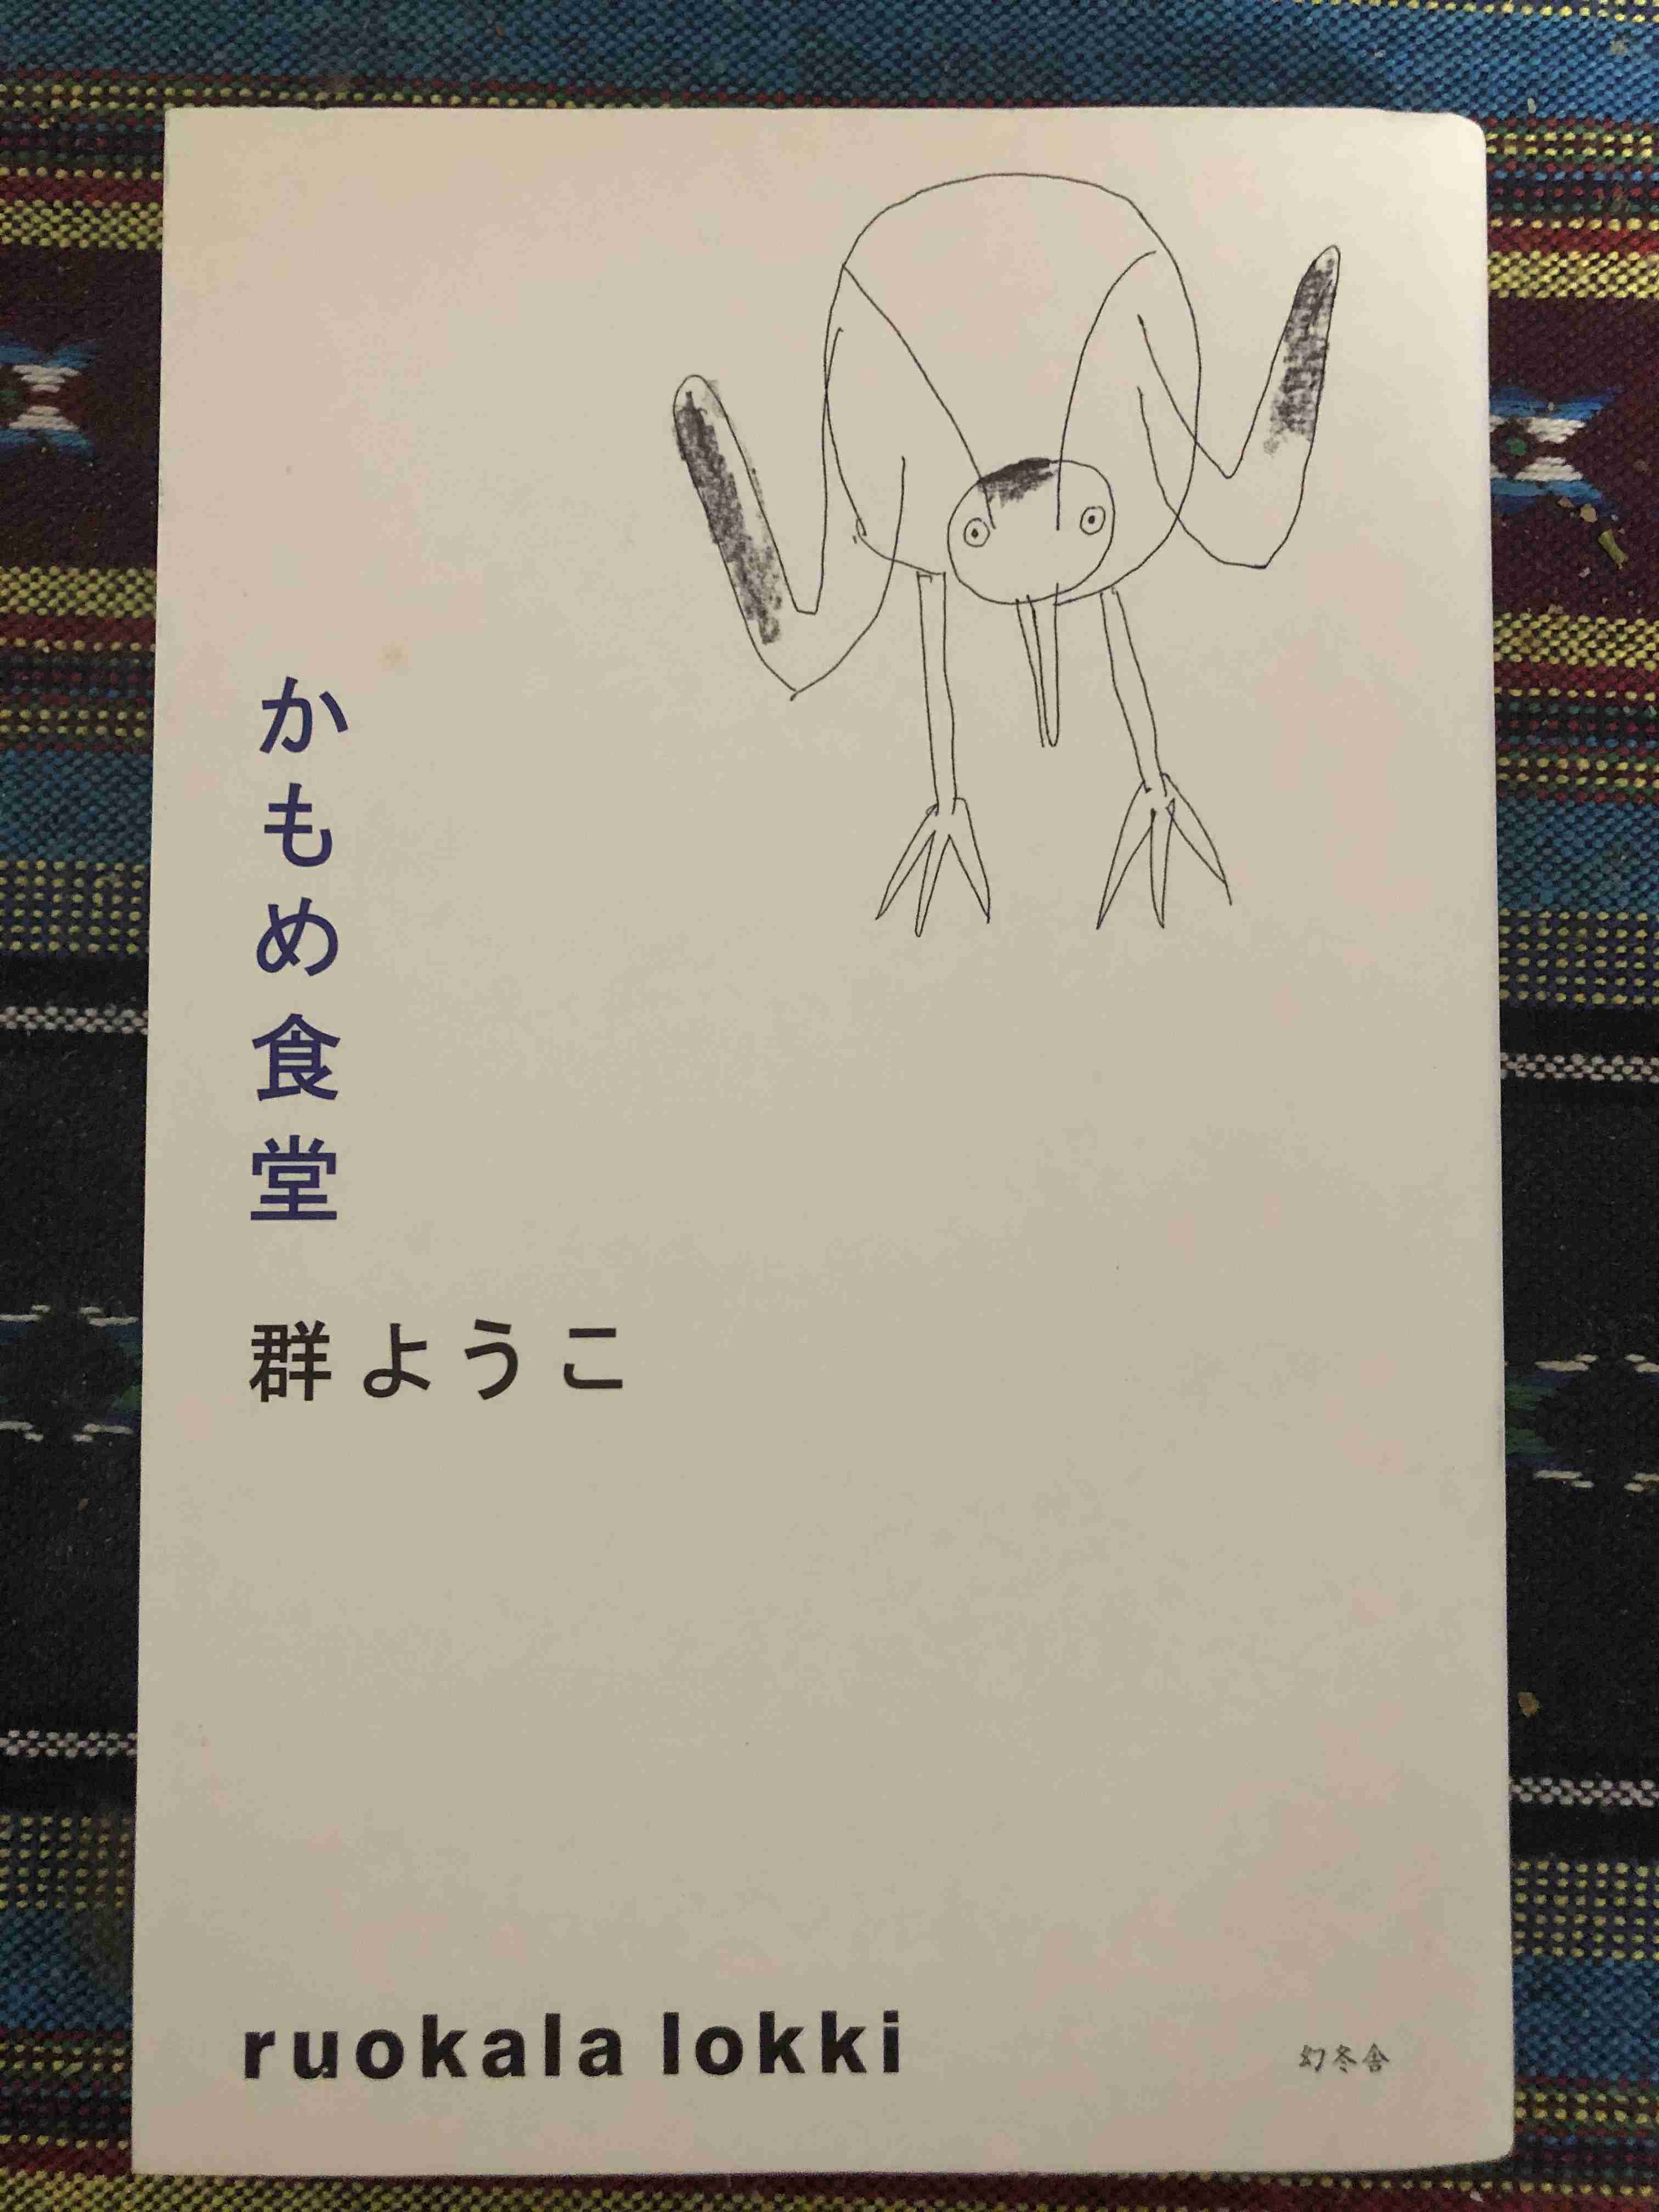 かもめ食堂
群ようこ
ruokala lokki
幻冬舎